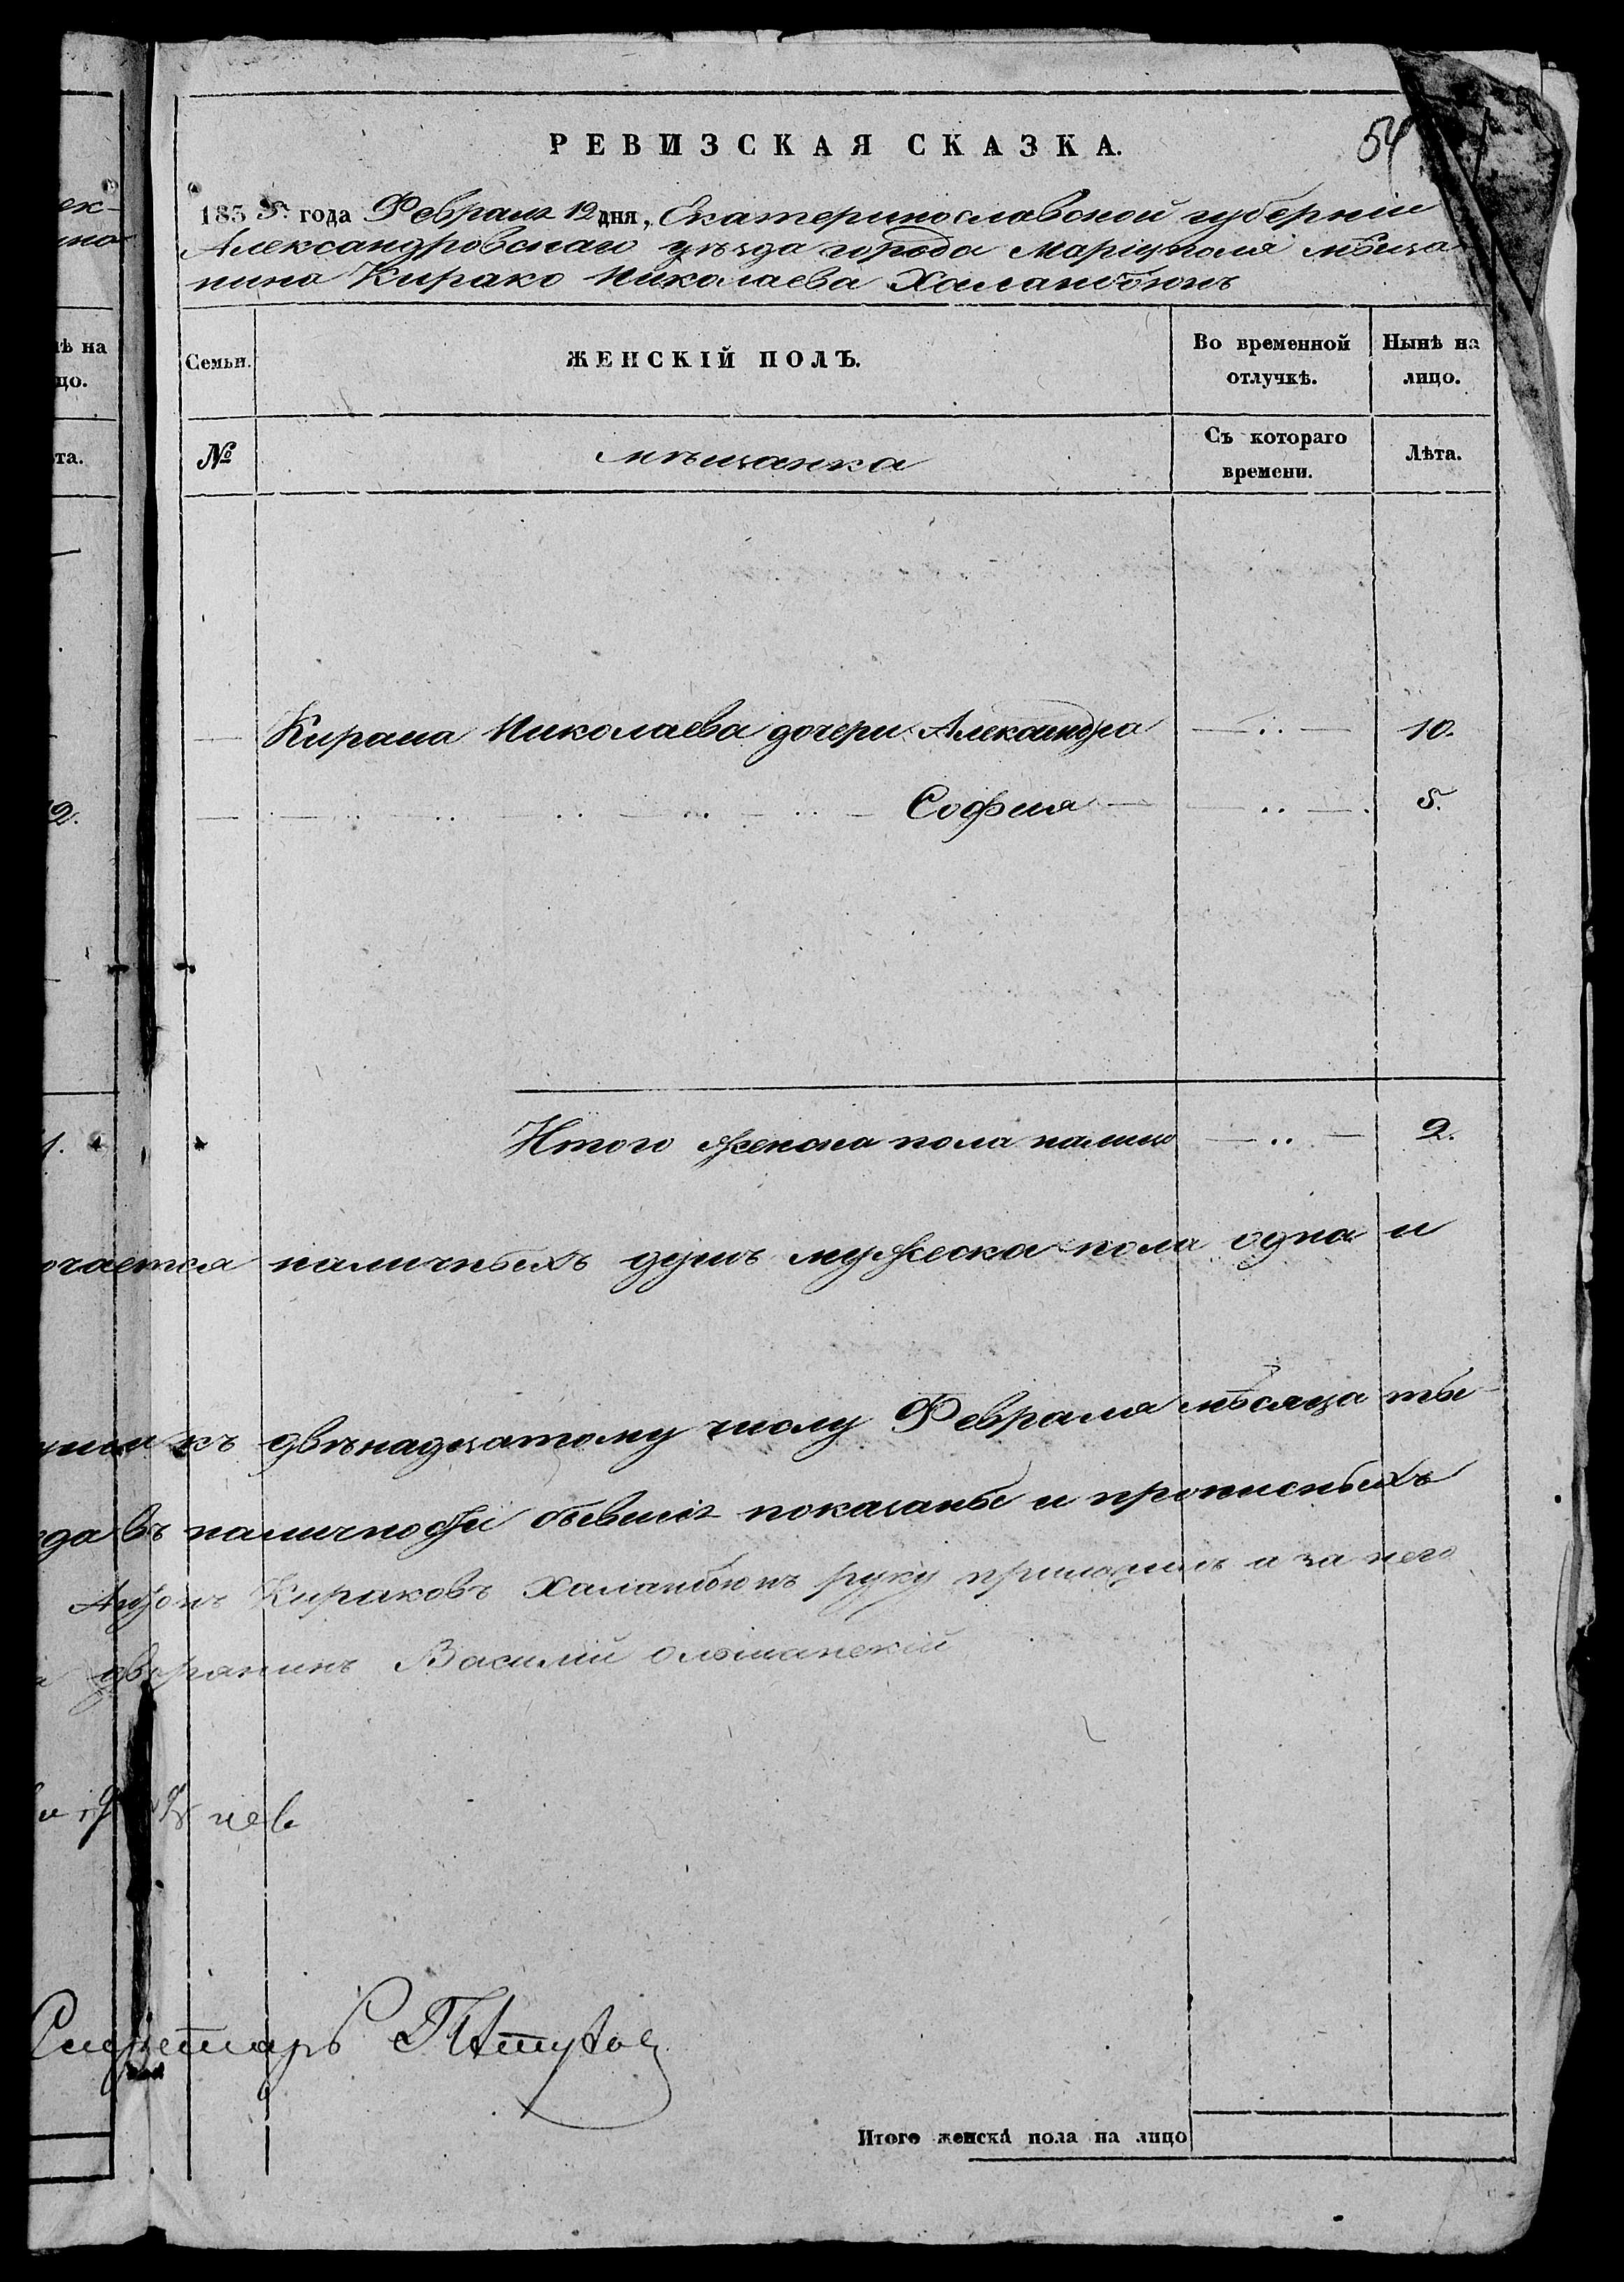 РЕВИЗСКАЯ СКАЗКА.
54
1855 года Февраля 12 дня, Екатеринославской губерніи
Александровскаго уѣзда города Маріуполя мѣща-
нина Кирако Николаева Халанбюнъ
Семьи.
ЖЕНСКІЙ ПОЛЪ.
Во временной отлучкѣ.
Нынѣ на лицо.
№
мѣщанка
Съ котораго времени.
Лѣта.
Николаева дочери Александра 10.
София 5.
Итого женска пола налицо 2.
чается наличныхъ душъ мужеска пола одна и
къ двѣнадцатому числу Февраля мѣсяца ты-
да въ наличности бывшія показаны и прописныхъ
Кираковъ Халанбюнъ руку приложилъ а за него
дворянинъ Василий Олшанскій
Секретарь
Итого женска пола на лицо